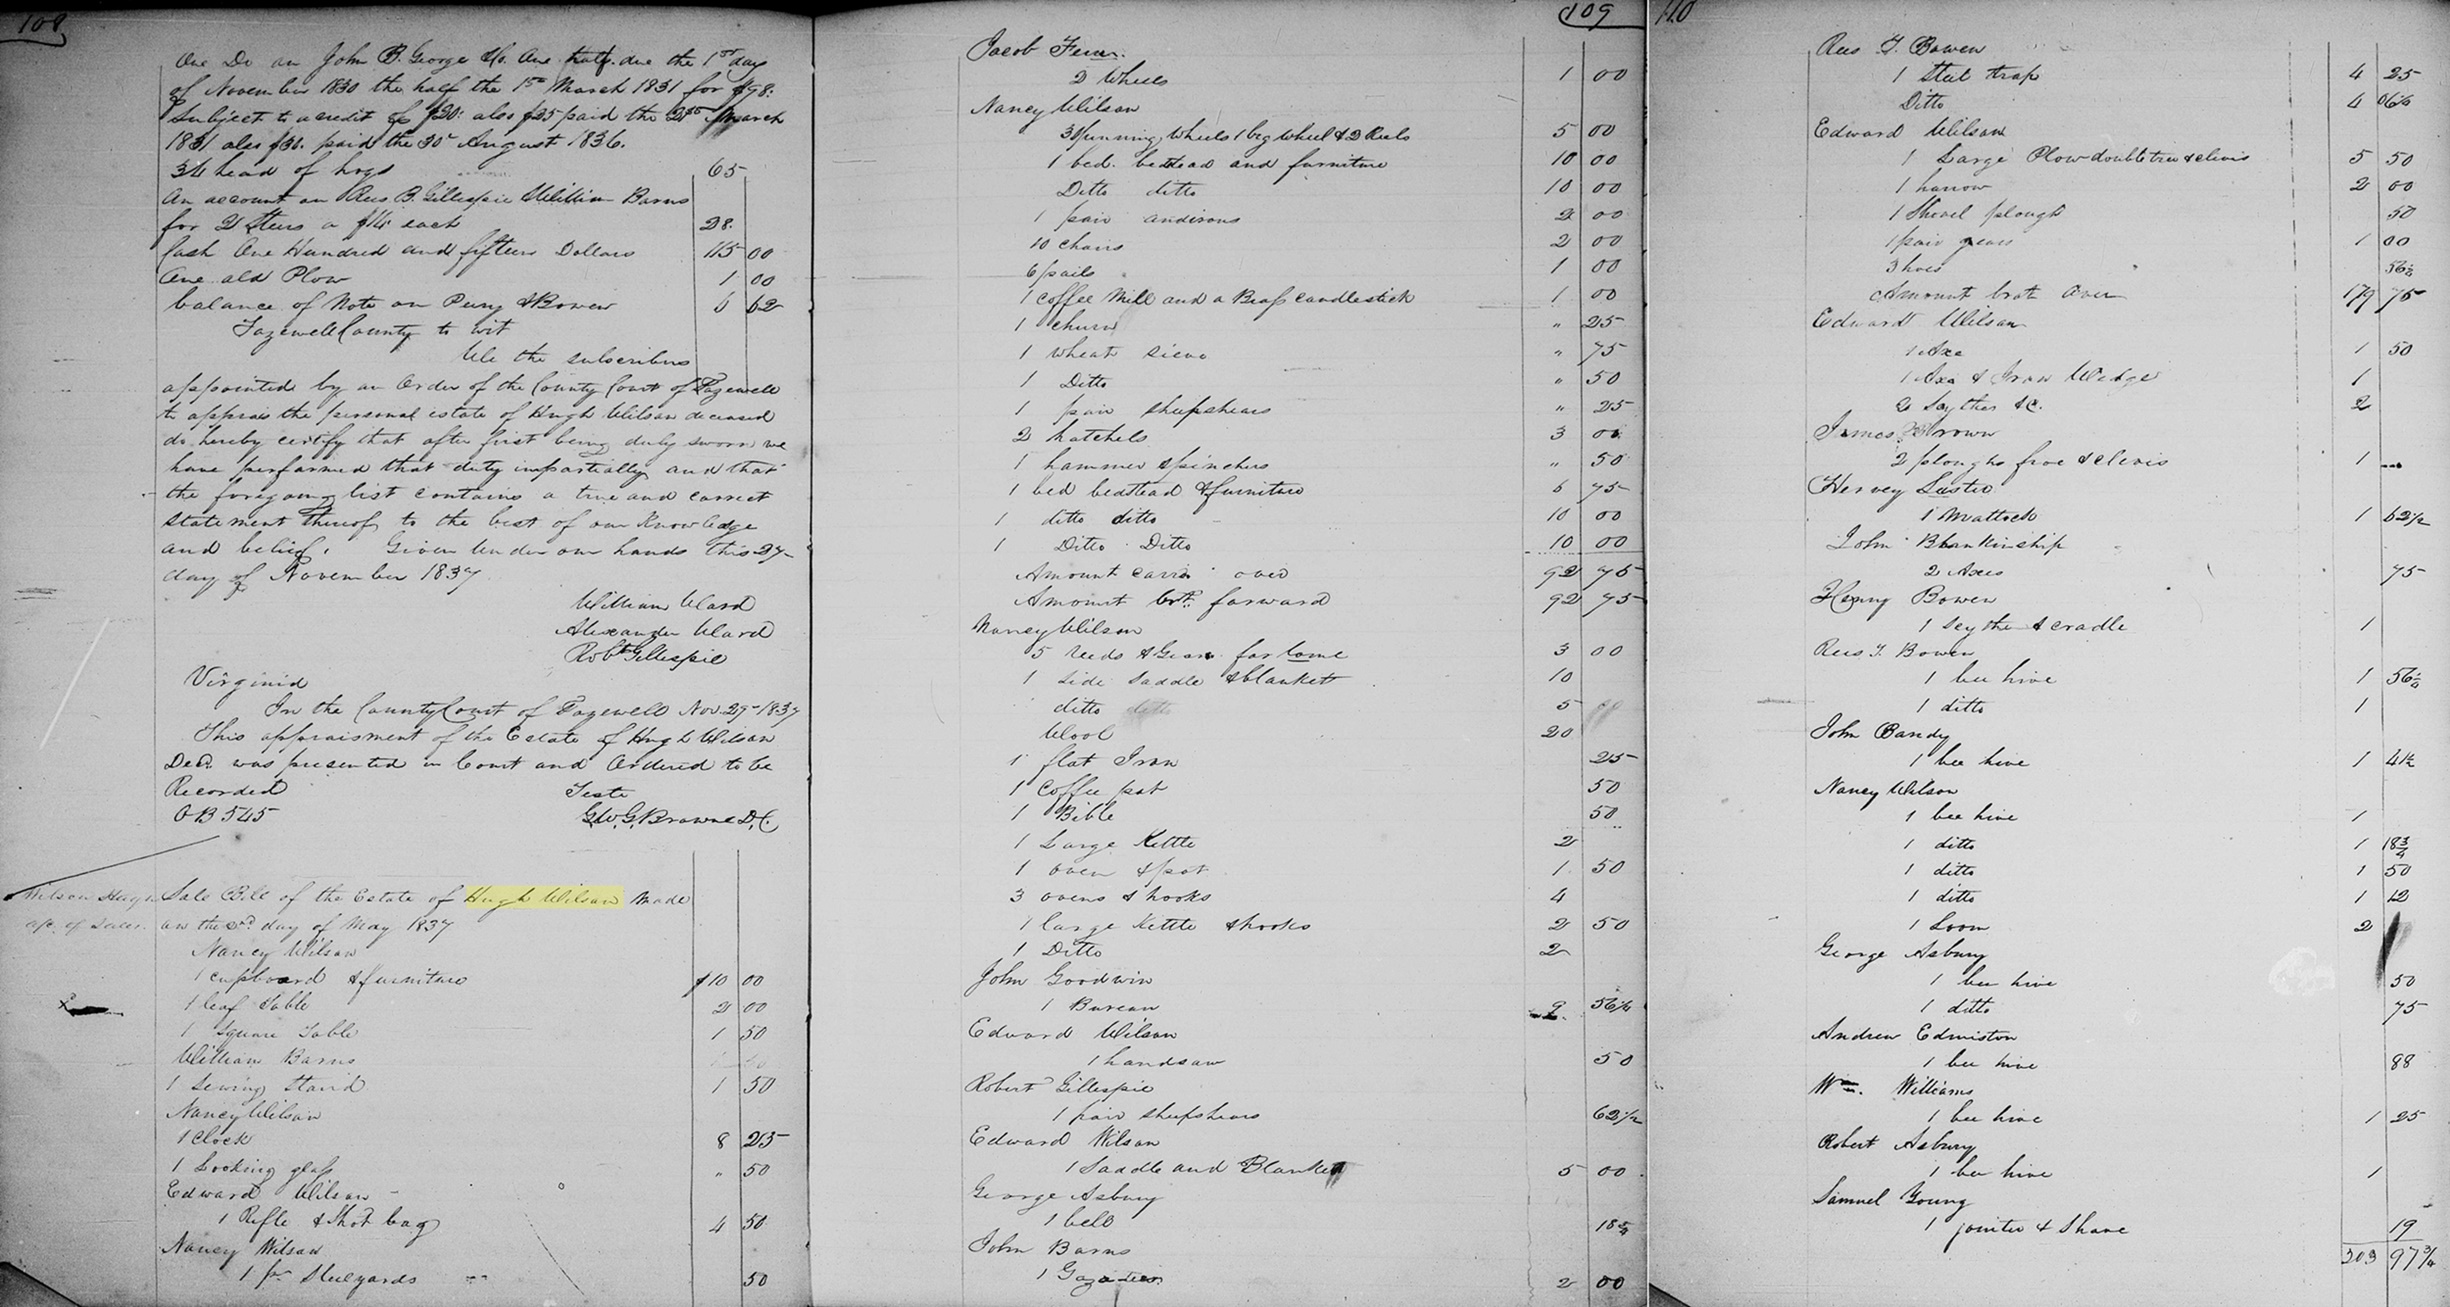 108
One Do on John B. George &c. One half due the 1st day
of November 1830 the half the 1st March 1831 for $98.
Subject to a credit of $20. also $25 paid the March
1831 also $36. paid the 30 August 1836.
34 head of hogs 65
An account on Rees B. Gillespie & William Barns
for 2 Steers a $14 each 28.
Cash One Hundred and fifteen Dollars 115 00
One old Plow 1 00
balance of Note on Perry & Bowen 6 62
Tazewell County to wit
We the subscribers
appointed by an Order of the County Court of Tazewell
to apprais the personal estate of Hugh Wilson deceased
do hereby certify that after first being duly sworn we
have performed that duty impartially and that
the foregoing list contains a true and correct
statement thereof to the best of our Knowledge
and belief. Given Under our hands this 27
day of November 1837
William Ward
Alexander Ward
Robt Gillespie
Virginia
In the County Court of Tazewell Nov. 27 1837
This appraisment of the Estate of Hugh Wilson
Decd. was presented in Court and Ordered to be
Recorded Teste
OB 545 G.W.G. Browne D.C.
Wilson Hugh Sale Bill of the Estate of Hugh Wilson Made
a/c of Sales. on the day of May 1837
Nancy Wilson
1 cupboard & furniture $10 00
1 leaf Table 2 00
1 Square Table 1 50
William Barns
1 Sewing Stand 1 50
Nancy Wilson
1 Clock 8 25
1 Looking glass " 50
Edward Wilson
1 Rifle & Shot bag 4 50
Nancy Wilson
1 pr Steelyards 50
109
Jacob
2 Wheels 1 00
Nancy Wilson
3 Spinning Wheels 1 big Wheel & 2 Reels 5 00
1 bed. bedstead and furniture 10 00
Ditto ditto 10 00
1 pair andirons 2 00
10 chairs 2 00
6 pails 1 00
1 Coffee Mill and a Brass candlestick 1 00
1 churn " 25
1 wheat sieve " 75
1 Ditto " 50
1 pair sheepshears " 25
2 hatchels 3 00
1 hammer & pinchers " 50
1 bed bedstead & furniture 6 75
1 ditto ditto 10 00
1 Ditto Ditto 10 00
Amount carrd over 92 75
Amount brt. forward 92 75
Nancy Wilson
5 reeds & Gears for lome 3 00
1 Side Saddle & blankett 10
ditto ditto 5 00
Wool 20
1 flat Iron 25
1 Coffee pot 50
1 Bible 50
1 Large Kettle 2
1 oven & pot 1 50
3 ovens & hooks 4
1 large Kettle & hooks 2 50
1 Ditto 2
John Goodwin
1 Bureau 9 56 1/4
Edward Wilson
1 handsaw 50
Robert Gillespie
1 pair sheepshears 62 1/2
Edward Wilson
1 Saddle and Blanket 5 00
George Asbury
1 bell 18 3/4
John Barns
1 2 00
110
Rees T. Bowen
1 Steel trap 4 25
Ditto 4 06 1/4
Edward Wilson
1 Large Plow doubletree & clevis 5 50
1 harrow 2 00
1 Shovel plough 50
1 pair gears 1 00
3 hoes 56 1/4
Amount brot Over 179 75
Edward Wilson
1 Axe 1 50
1 Axe & Iron Wedge 1
2 Scythes &C. 2
James Brown
2 ploughs froe & clevis 1
Hervey Lester
1 Mattock 1 62 1/2
John Blankinship
2 Axes 75
Henry Bowen
1 scythe & cradle 1
Rees T. Bowen
1 bee hive 1 56 1/4
1 ditto 1
John Bandy
1 bee hive 1 41 1/2
Nancy Wilson
1 bee hive 1
1 ditto 1 18 3/4
1 ditto 1 50
1 ditto 1 12
1 Loom 2
George Asbury
1 bee hive 50
1 ditto 75
Andrew Edmiston
1 bee hive 88
Wm. Williams
1 bee hive 1 25
Robert Asbury
1 bee hive 1
Samuel Young
1 jointer & Shave 19
203 97 3/4